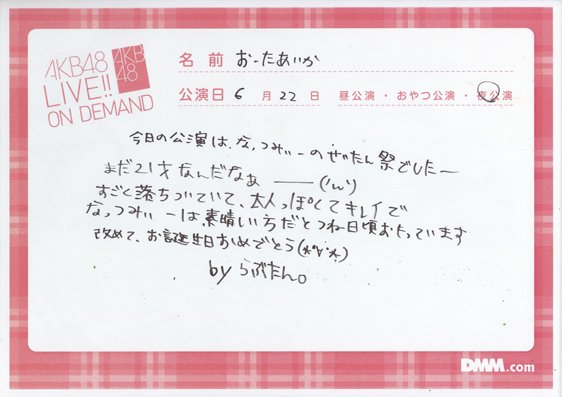 AKB48
LIVE!!
ON DEMAND
AKB
48
名前 おーたあいか
公演日 6月22日 昼公演・おやつ公演・夜公演
今日の公演は、なっつみぃーのせいたん祭でしたー
まだ21才なんだなぁ――('ん')
すごく落ちついていて、大人っぽくてキレイで
なっつみぃーは素晴しい方だとつね日頃おもっています
改めて、お誕生日おめでとう(*°∀°*)
by らぶたん。
DMM.com